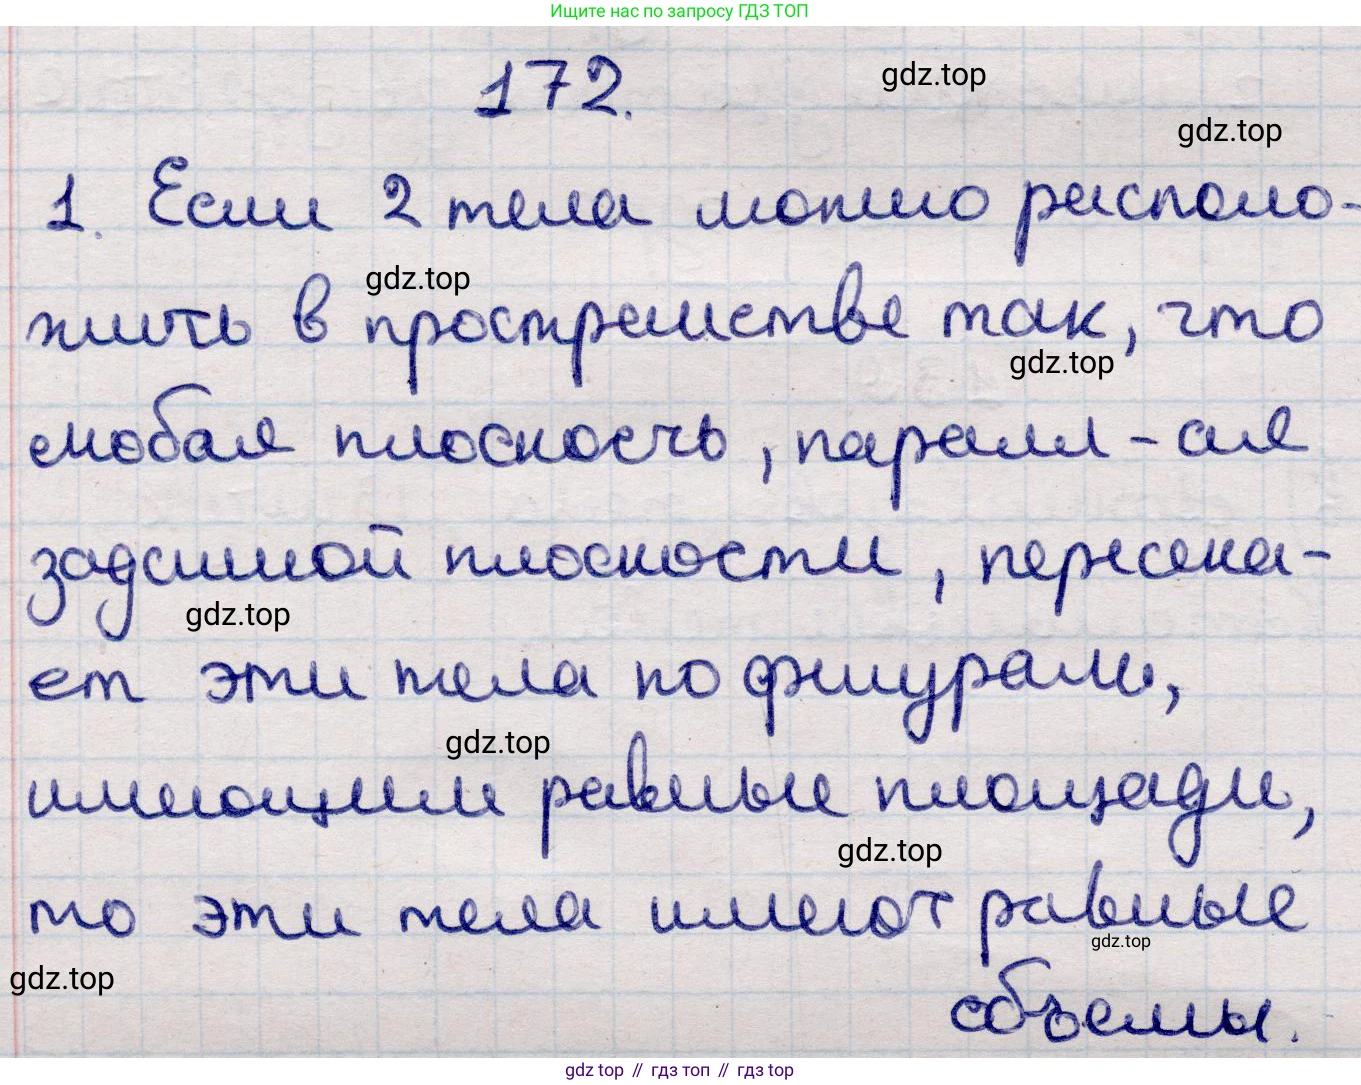 Ищите нас по запросу ГДЗ ТОП
172.
gdz.top
gdz.top
1. Если 2 тела можно располо-
gdz.top
жить в пространстве так, что
gdz.top
любая плоскость, паралл-ая
заданной плоскости, пересека-
gdz.top
ет эти тела по фигурам,
gdz.top
имеющим равные площади,
gdz.top
то эти тела имеют равные
gdz.top
gdz.top
объемы.
gdz top // гдз топ // гдз top